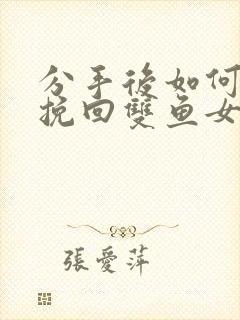 分手後如何
挽回雙鱼女
張愛萍